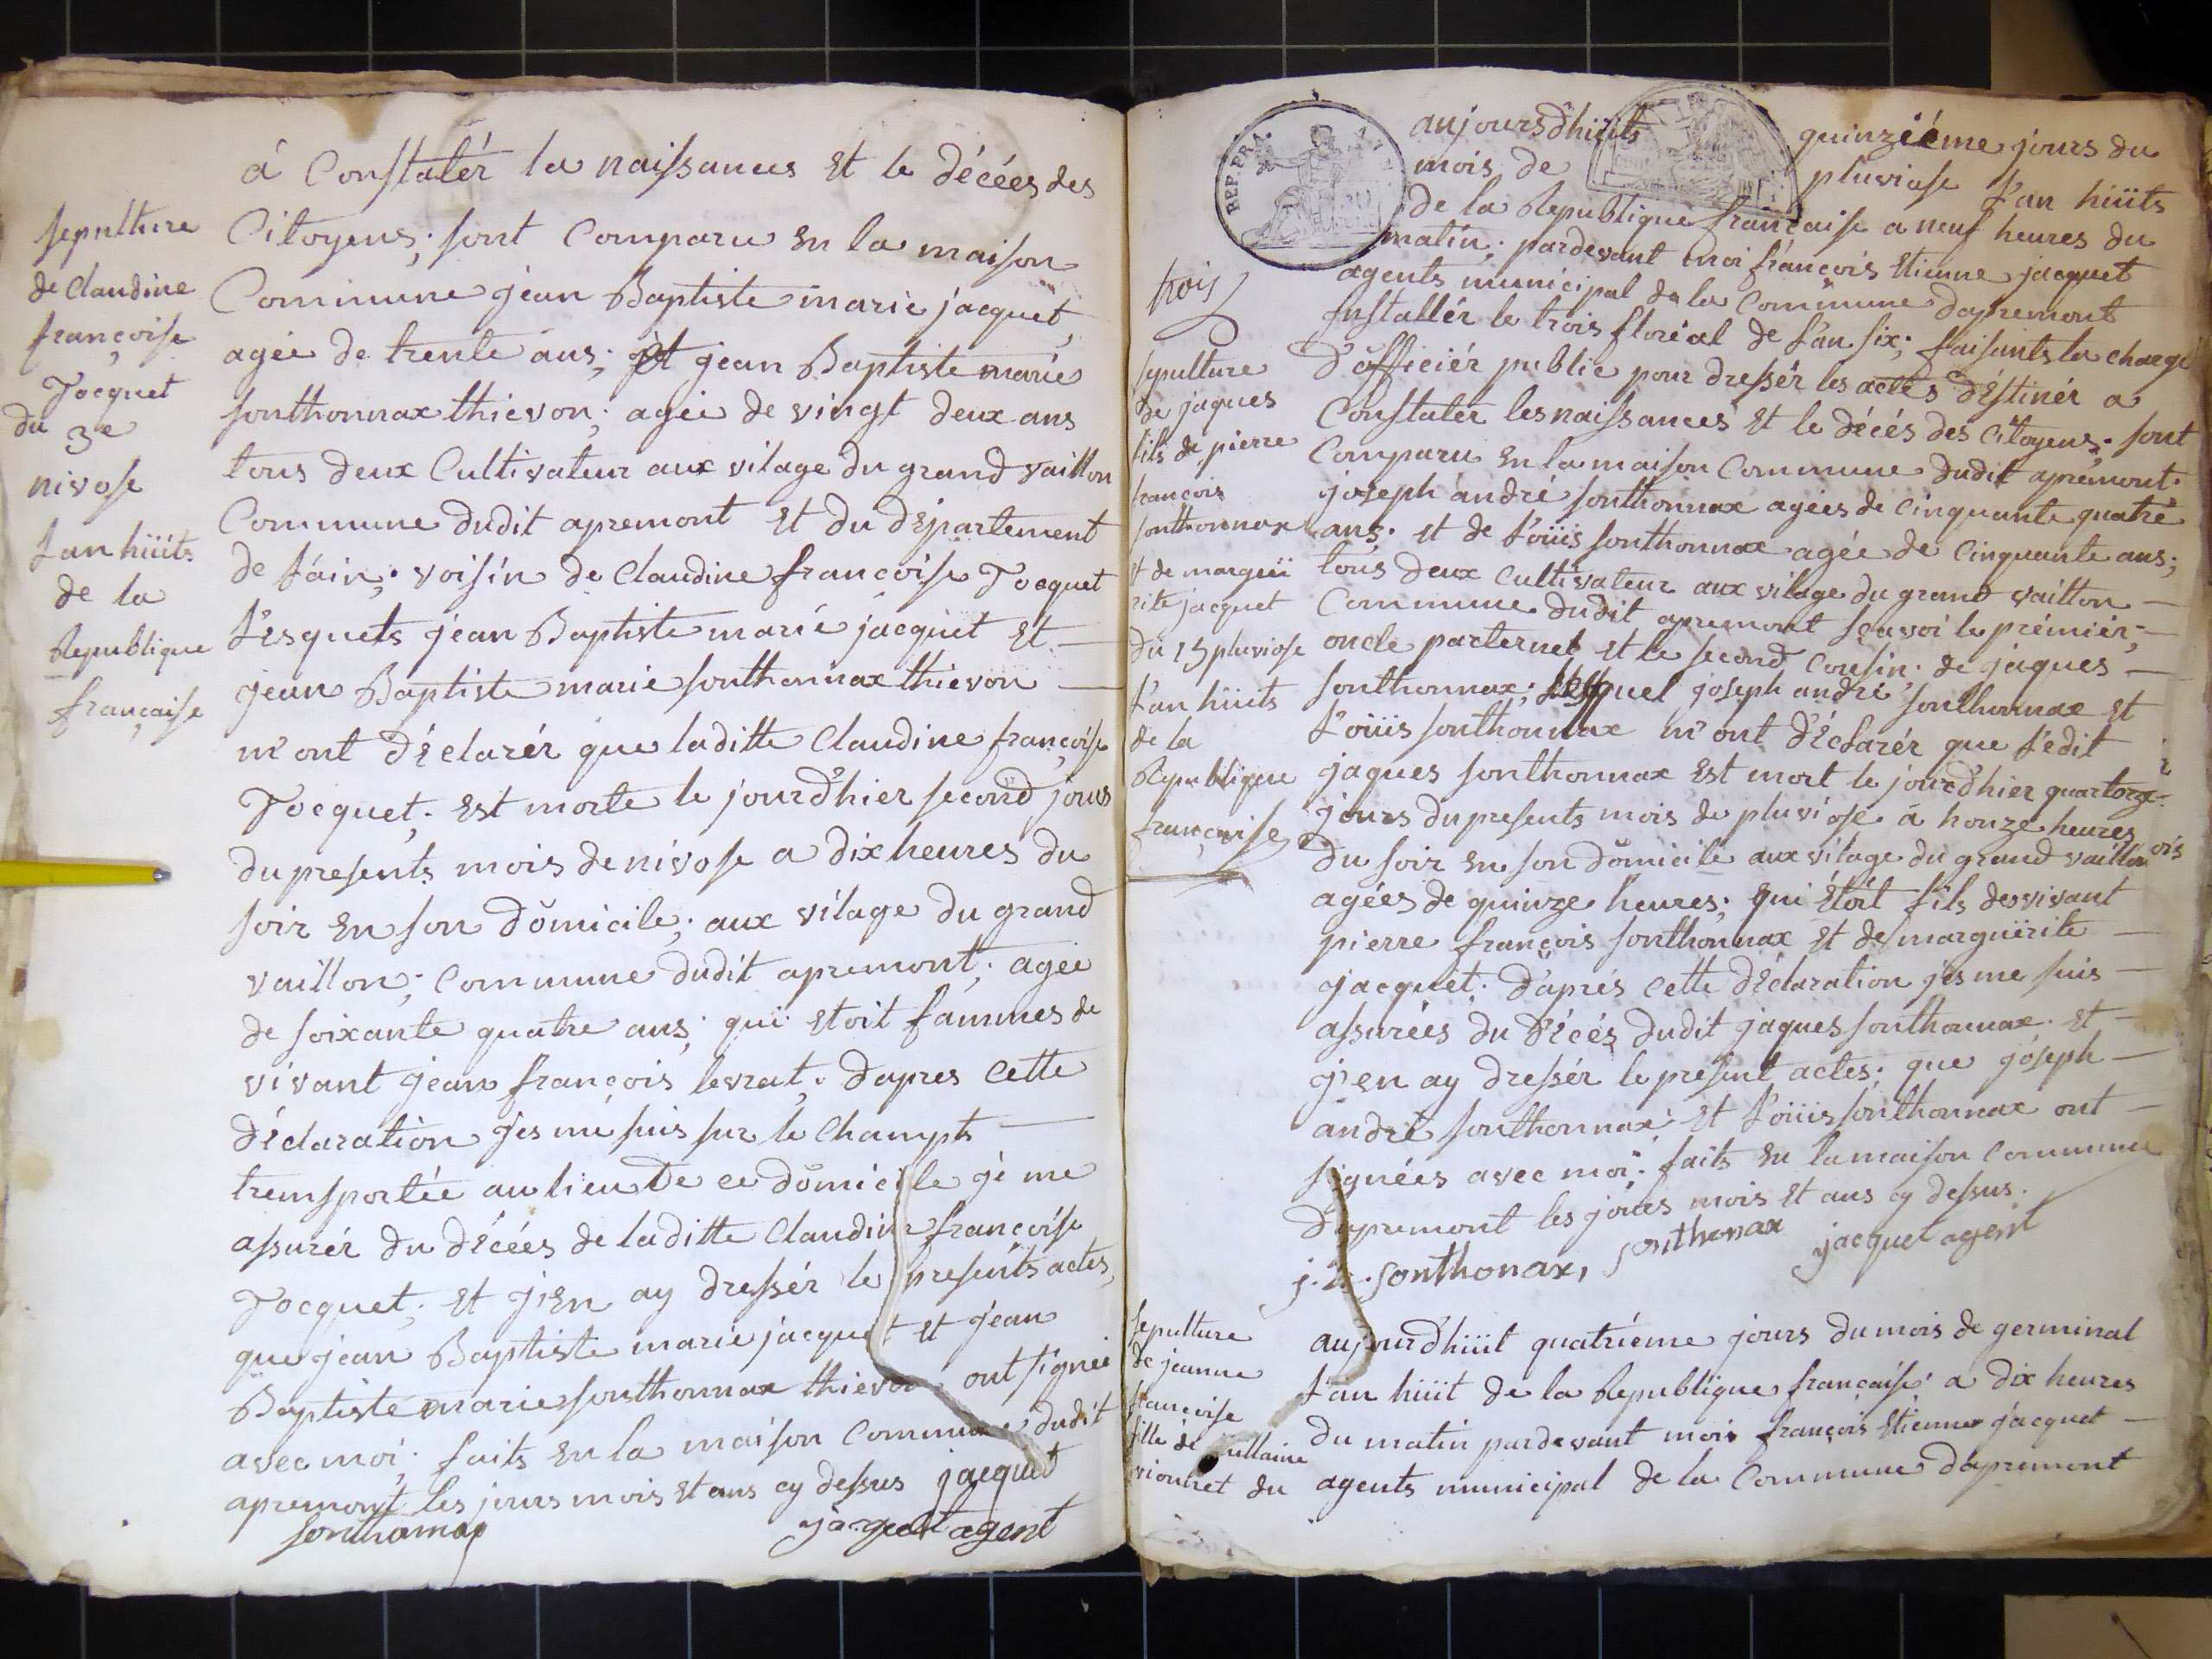 á Constatér la naissances Et le décées des
Citoyens; sont Comparu En la maison
Commune jean Baptiste marie jacquet,
agée de trente ans; Et jean Baptiste marie
sonthonnax thievon; agée de vingt deux ans
tous deux Cultivateur aux vilage du grand vaillon
Commune dudit apremont Et du département
de l'ain; voisin de Claudine françoise Jocquet
lesquels jean Baptiste marié jacquet Et
jean Baptiste marie sonthonnax thievon
m'ont déclarér que laditte Claudine françoise
Jocquet; Est morte le jourd'hier second jours
du presents mois de nivose a dix heures du
soir En son domicile; aux vilage du grand
vaillon; Commune dudit apremont; agée
de soixante quatre ans; qui Etoit fammes de
vivant jean françois levrat; dapres Cette
déclaration jes me suis sur le Champts
transportée au lieu de ce domicile je me
assurér du décées de laditte Claudine françoise
Jocquet; Et j'En ay dressér le presents actes,
que jean Baptiste marie jacquet Et jean
Baptiste marie sonthonnax thievon ont signée
avec moi; faits En la maison Commune dudit
apremont les jours mois Et ans cy dessus jacquet
sonthonax jacquet agent
sepulture
de Claudine
françoise
Jocquet
du 3e
nivose
l'an hüits
de la
Republique
française
REP. FRA.
aujoursdhüits quinziéme jours du
mois de pluviose l'an hüits
de la Republique française a neuf heures du
matin; pardevant moi françois Etienne jacquet
agents municipal de la Commune dapremont
installér le trois floréal de l'an six; faisants la charge
d'officiér public pour dressér les actes déstinér a
Constater les naissances Et le décés des Citoyens; sont
Comparu En la maison Commune dudit apremont.
joseph andré sonthonnax agées de Cinquante quatre
ans; et de l'oüis sonthonnax agée de Cinquante ans;
tous deux Cultivateur aux vilage du grand vaillon
Commune dudit apremont sçavoi le prémiér;
oncle pacternel Et le second Cousin; de jaques
sonthonnax; lesquel joseph andré sonthonnax Et
l'oüis sonthonnax m'ont déclarér que ledit
jaques sonthonnax Est mort le jourd'hier quartorze
jours du presents mois de pluviose á honze heures
du soir En son domicile aux vilage du grand vaillon
agées de quinze heures; qui étoit fils desvivant
pierre françois sonthonnax Et de marguerite
jacquet; d'aprés Cette déclaration jes me suis
assurées du décés dudit jaques sonthonnax. Et
j'en ay dressér le présent actes; que joseph
andré sonthonnax; Et l'oüis sonthonnax ont
signées avec moi; faits En la maison Commune
dapremont les jours mois Et ans cy dessus.
sonthonax, sonthonax jacquet agent
trois
sepulture
de jaques
fils de pierre
françois
sonthonnax
Et de margue
rite jacquet
du 15 pluviose
l'an hüits
de la
Republique
française
aujourdhüit quatriéme jours du mois de germinal
l'an hüit de la Republique française a dix heures
du matin pardevant moi françois Etienne jacquet
agents municipal de la Commune dapremont
sepulture
de jeanne
françoise
fille de
du